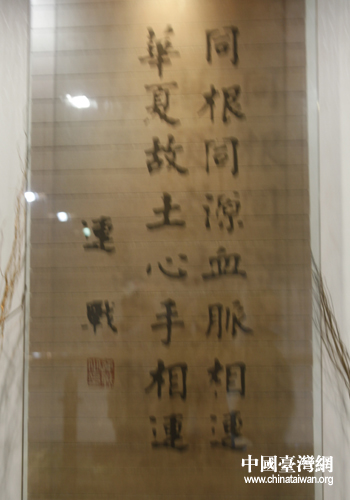 同根同源血脈相連
華夏故土心手相連
連戰
中國臺灣網
www.chinataiwan.org